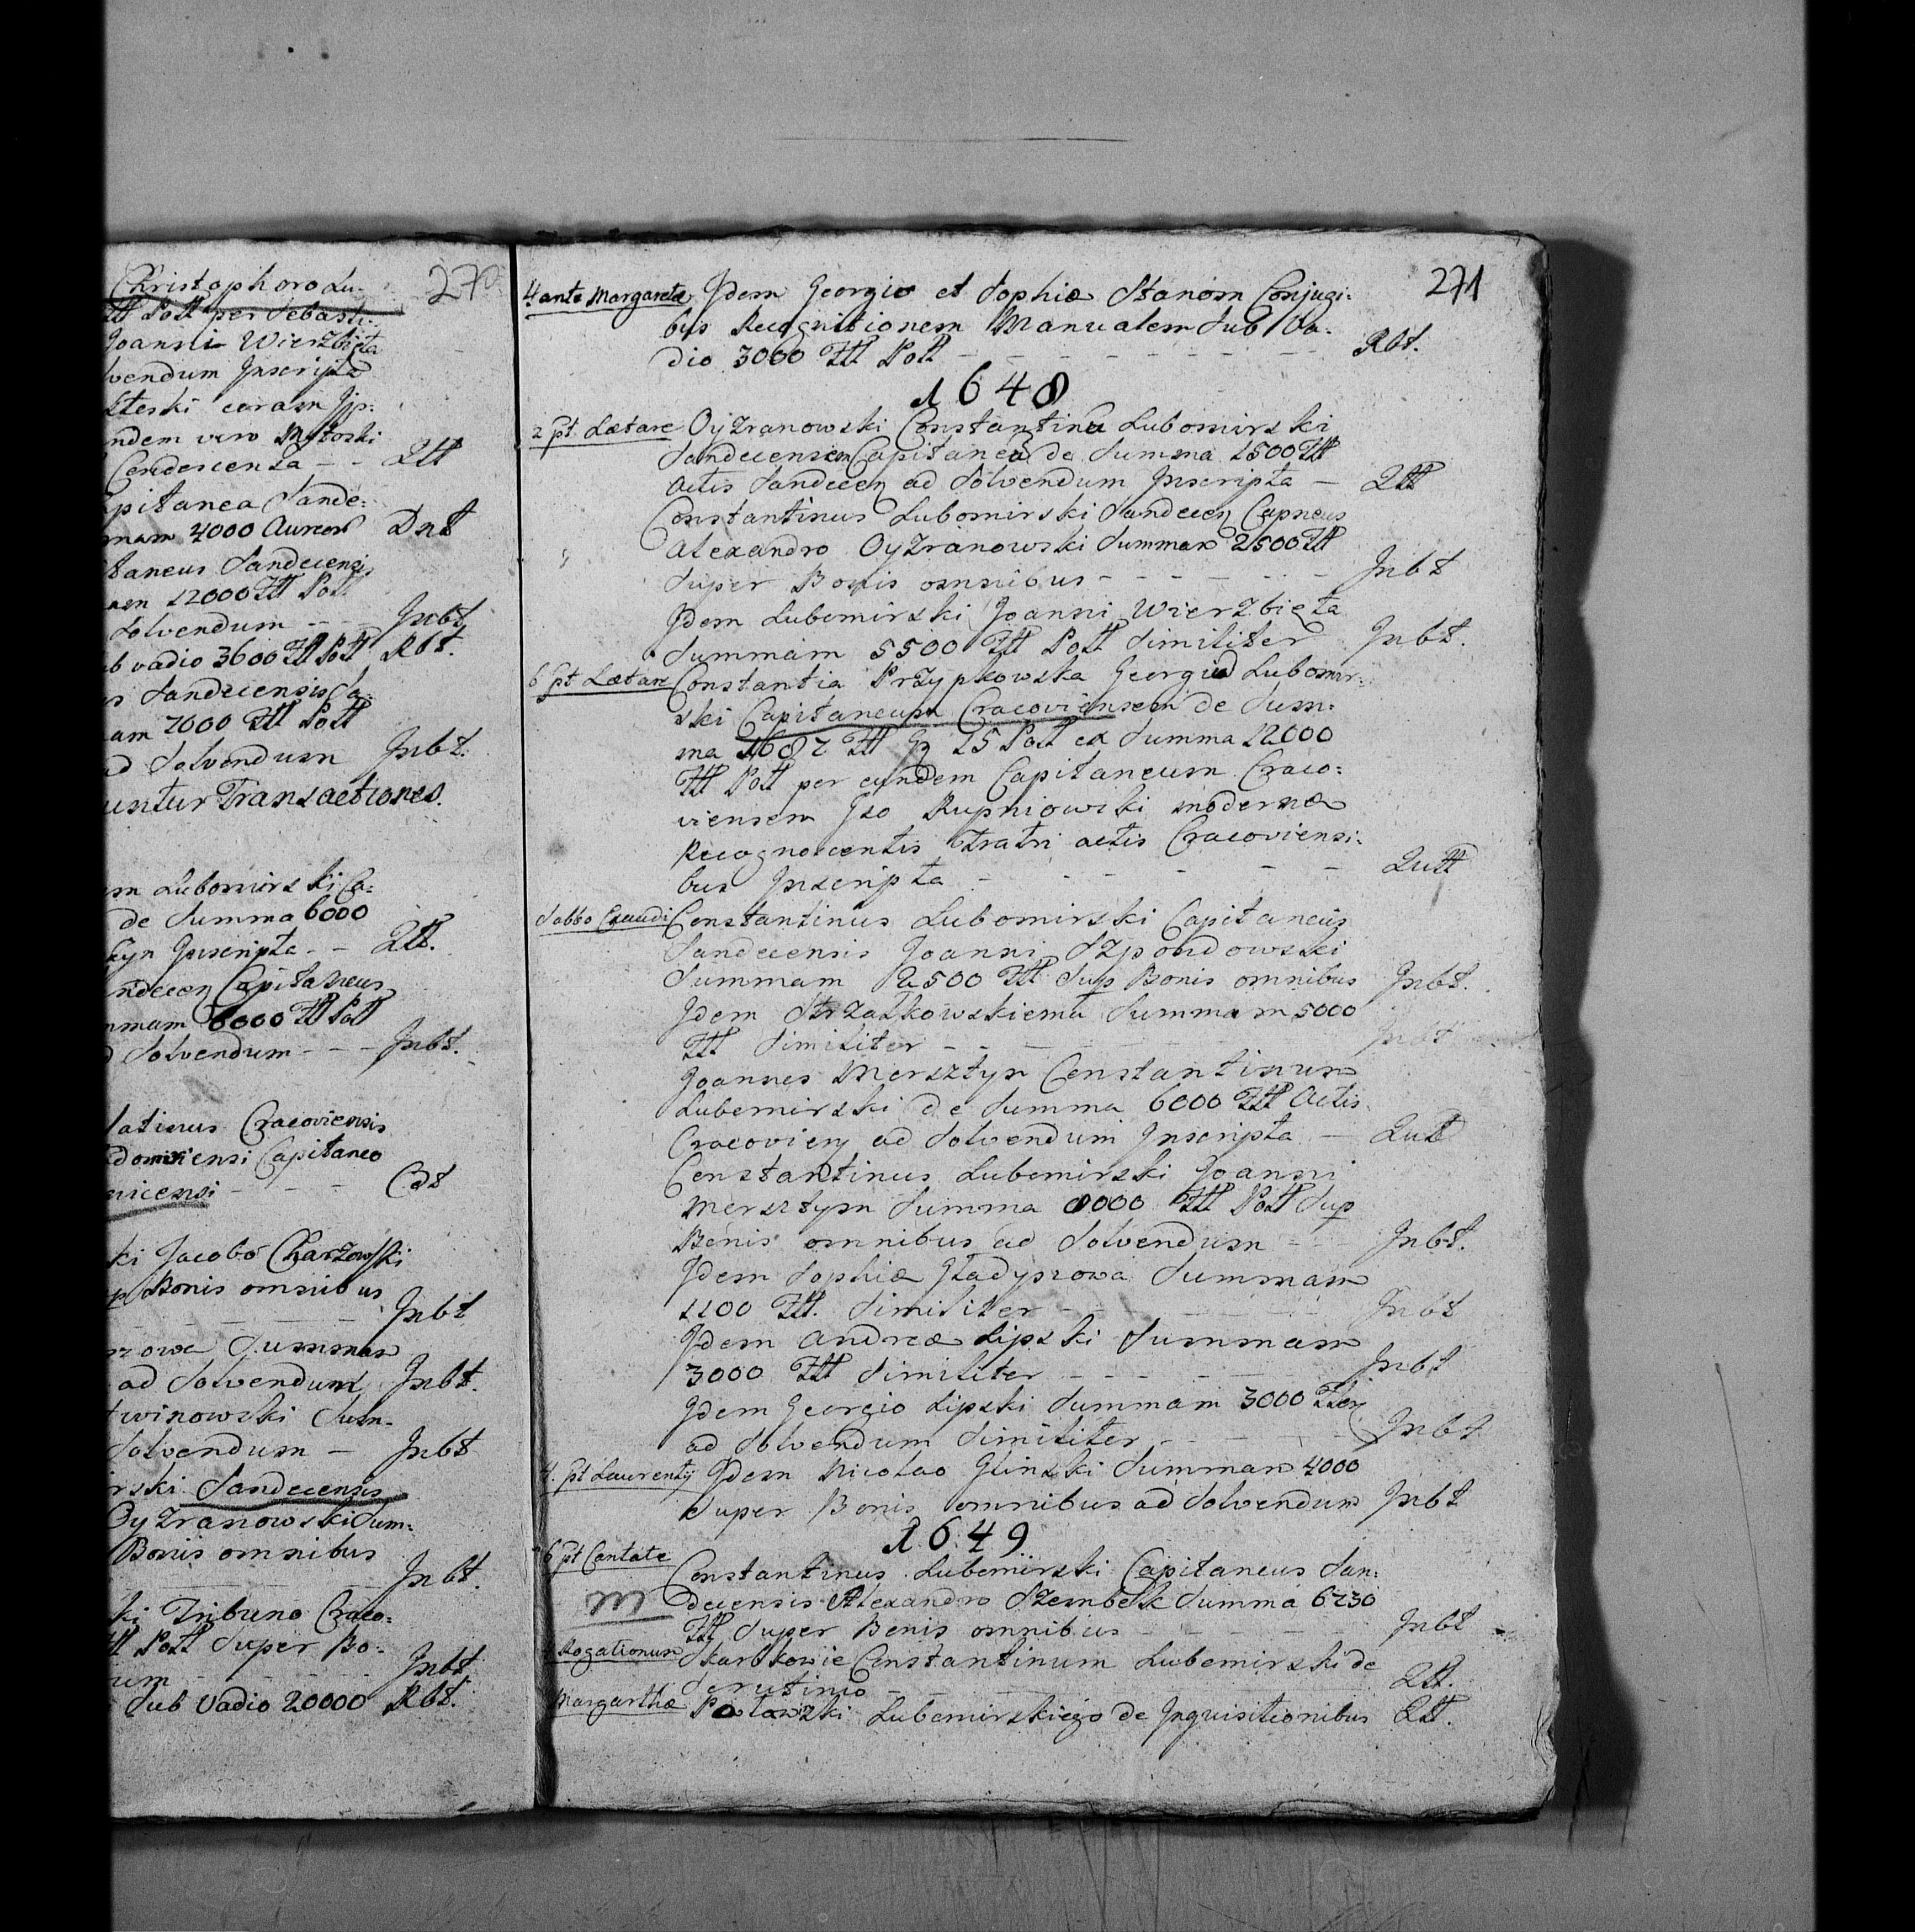 Christophoro Lu- 270
Ztt Poll per Sebasti-
Joanni Wierzbięta
lvendum Inscripta
coram Jp:
ndem vero
Condescensa - - Qtt
pitanea Sande:
mam 4000 Aureor Dnt
taneus Sandecenz
am 12000 Ztt Poll
Solvendum - - - Inbt
ub vadio 3600 Ztt Poll Rbt.
s Sandecensis Ja-
am 7000 Ztt Poll
ad Solvendum Inbt.
untur Transactiones.
um Lubomirski Ca-
de Summa 6000
Inscripta - - Qtt.
ndecen Capitaneus
mmam 6000 Ztt Poll
d Solvendum - - - Inbt.
latinus Cracoviensis
domiriensi Capitaneo
nicensi - - - Cdt
ki Jacobo Charzowski
p Bonis omnibus
Inbt
rowa Summam
ad Solvendum Inbt.
winowski Sum-
Solvendum - Inbt
rski Sandecensis
Oyzranowski Sum-
Bonis omnibus
Inbt.
ki Tribuno Craco-
tt Poll Super Bo-
rum - - - Inbt
Sub Vadio 20000 Rbt.
271
4 ante Margareta Idem Georgio et Sophiæ Stanom Conjugi-
bus Recognitionem Manualem Sub Va-
dio 3000 Ztt Poll - - - Rbt.
1648
2 pt Lætare Oyzranowski Constantinū Lubomirski
Sandecensem Capitaneū de Summa 1500 Ztt
Actis Sandecen ad Solvendum Inscripta - Qtt
Constantinus Lubomirski Sandecen Capneus
" Alexandro Oyzranowski Summam 2500 Ztt
Super Bonis omnibus - - - Inbt
Idem Lubomirski Joanni Wierzbięta
Summam 5500 Ztt Poll Similiter Inbt.
6 pt Lætare Constantia Przypkowska Georgiū Lubomir-
ski Capitaneum Cracoviensem de Sum-
ma 1687 Ztt Gz 15 Poll ex Summa 12000
Ztt Poll per eundem Capitaneum Craco-
viensem Gso Rupniowski modernæ
Recognoscentis Fratri actis Cracoviensi-
bus Inscripta - - - Qutt
Sabbo Exaudi Constantinus Lubomirski Capitaneus
Sandecensis Joanni Szpondowski
Summam 2500 Ztt Sup Bonis omnibus Inbt.
Idem Strzałkowskiemu Summam 5000
Ztt Similiter - - - Inbt
Joannes Mersztyn Constantinum
Lubomirski de Summa 6000 Ztt Actis
Cracovien ad Solvendum Inscripta - Qutt
Constantinus Lubomirski Joanni
Mersztyn Summa 8000 Ztt Poll Sup
Bonis omnibus ad Solvendum - - Inbt.
Idem Sophiæ Gładyszowa Summam
1100 Ztt. Similiter - - - Inbt
Idem Andreæ Lipski Summam
3000 Ztt Similiter - - - Inbt
Idem Georgio Lipski Summam 3000 Zlen
ad Solvendum Similiter - - - Inbt
4. pt Laurentij Idem Nicolao Glinski Summam 4000
Super Bonis omnibus ad Solvendum Inbt
1649
6 pt Cantate Constantinus Lubomirski Capitaneus San-
m decensis Alexandro Szembek Summa 6230
Ztt Super Bonis omnibus - - - Inbt
4 Rogationum Skarbkowie Constantinum Lubomirski de
Scrutinio - - - Qtt.
Margarthæ Potowski Lubomirskiego de Inquisitionibus Qtt.